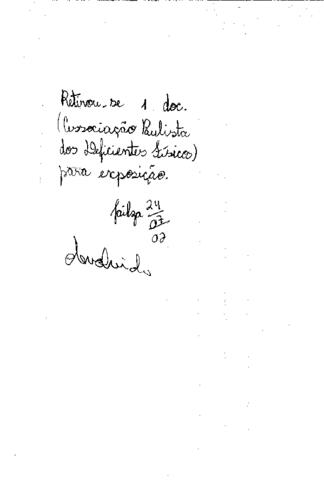 Retirou-se 1 doc.
(Associação Paulista
dos Deficientes Físicos)
para exposição.
24
07
02
devolvido